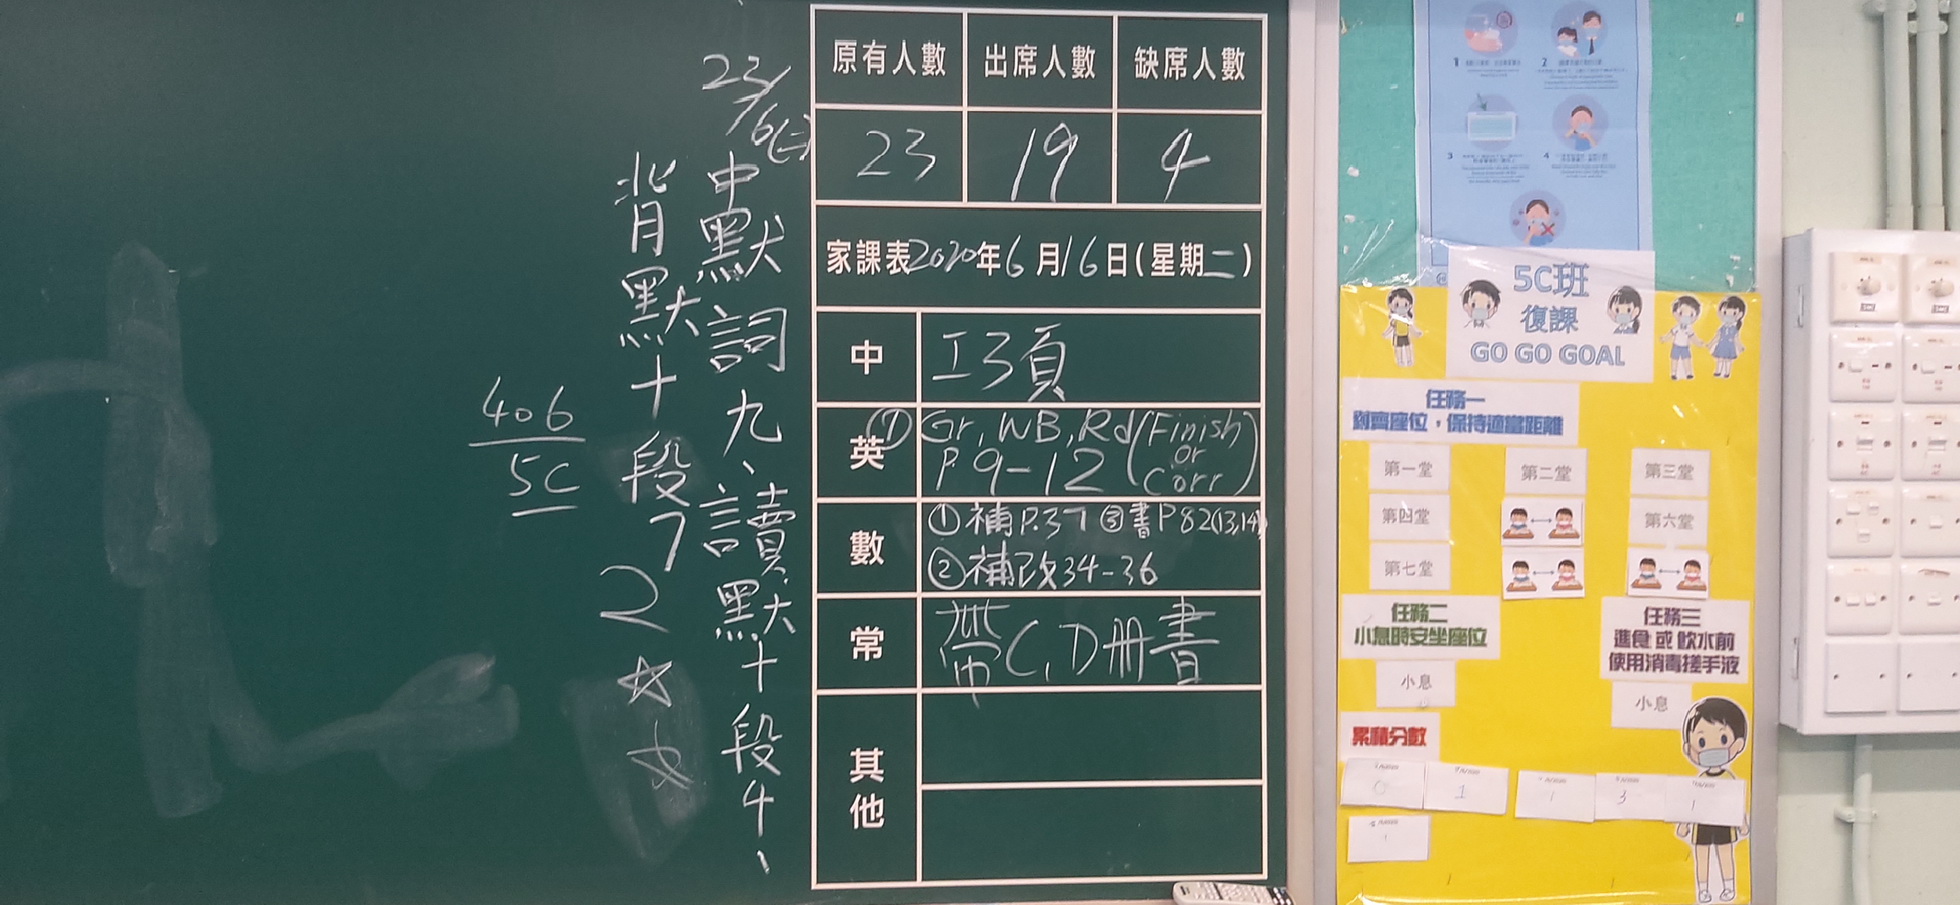 原有人數 出席人數 缺席人數
23 19 4
家課表2020年6月16日(星期二)
中 工3頁
英 ① Gr, WB, Rd (Finish or Corr)
P. 9-12
數 ①補P.37 ③書P82(13,14)
②補改34-36
常 帶C, D冊書
其他
23/6(二)
中默詞九、讀默十段4、
背默十段7
2☆☆
406
5C
1
2
3
4
5C班
復課
GO GO GOAL
任務一
對齊座位，保持適當距離
第一堂 第二堂 第三堂
第四堂 第六堂
第七堂
任務二
小息時安坐座位
小息
任務三
進食 或 飲水前
使用消毒搓手液
小息
累積分數
0 1 1 3 1
1